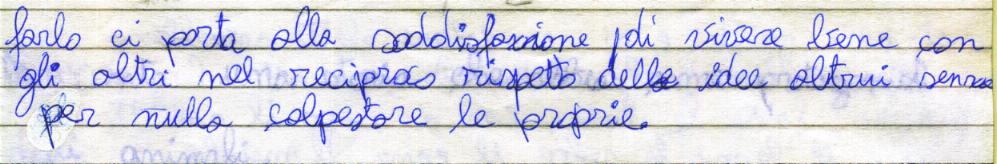 farlo ci porta alla soddisfazione di vivere bene con
gli altri nel reciproco rispetto delle idee altrui senza
per nulla calpestare le proprie.